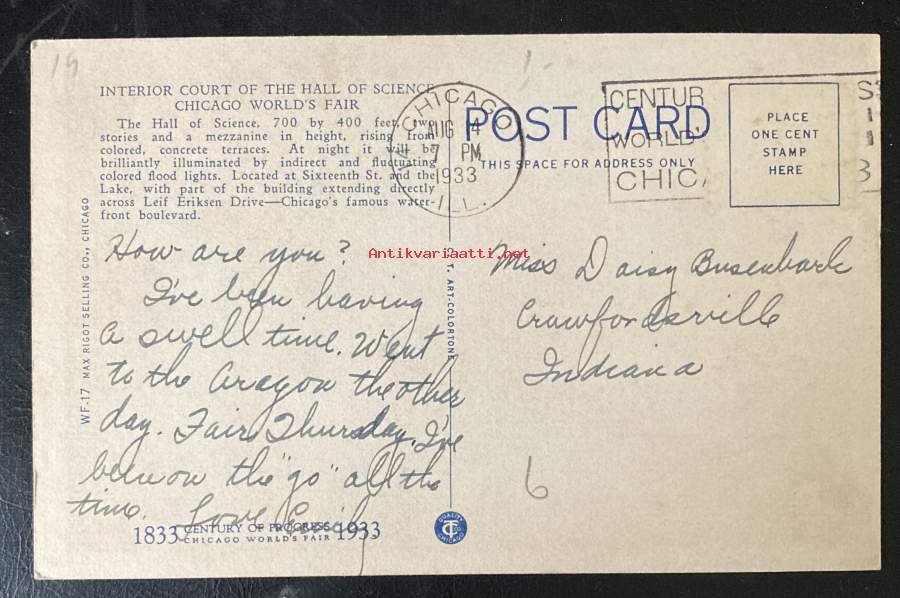 19
1-
INTERIOR COURT OF THE HALL OF SCIENCE
CHICAGO WORLD'S FAIR
The Hall of Science, 700 by 400 feet, two
stories and a mezzanine in height, rising from
colored, concrete terraces. At night it will be
brilliantly illuminated by indirect and fluctuating
colored flood lights. Located at Sixteenth St. and the
Lake, with part of the building extending directly
across Leif Eriksen Drive—Chicago's famous water-
front boulevard.
CHICAGO
AUG 4
7 PM
1933
ILL.
POST CARD
THIS SPACE FOR ADDRESS ONLY
CENTUR
WORLD'
CHIC
PLACE
ONE CENT
STAMP
HERE
WF-17 MAX RIGOT SELLING CO., CHICAGO
T. ART-COLORTONE
Antikvariaatti.net
How are you?
I've been having
a swell time. Went
to the Aragon the other
day. Fair Thursday. I've
been on the "go" all the
time. Love
Miss Daisy Busenbark
Crawfordsville
Indiana
6
1833 CENTURY OF PROGRESS 1933
CHICAGO WORLD'S FAIR
QUALITY
CT
CO
CHICAGO